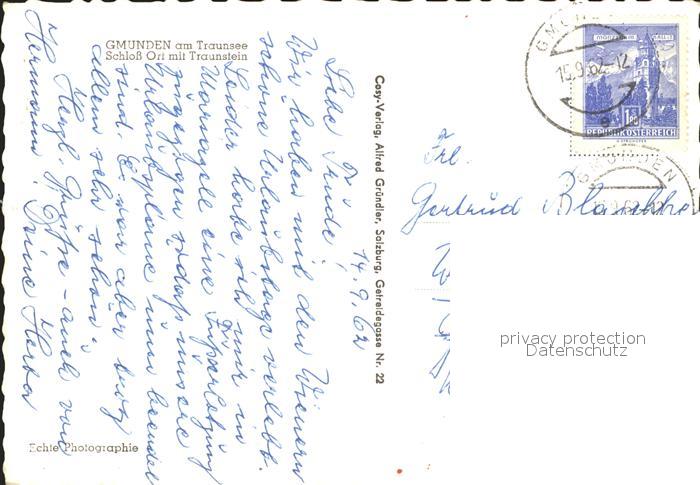 GMUNDEN am Traunsee
Schloß Ort mit Traunstein
14.9.62
Liebe Trude!
Wir haben mit den Wienern
schöne Urlaubstage verlebt.
Leider habe ich mir in
eine Fußverletzung
zugezogen sodaß unsere
Urlaubspläne nun beendet
sind. Es war aber trotz
allem sehr schön.
Herzl. Grüße - auch von
Hermann! Deine Herta
Echte Photographie
Cosy-Verlag, Alfred Gründler, Salzburg, Getreidegasse Nr. 22
GMUNDEN
15.9.62-12
MÜNZTURM HALL I.T.
1.50
REPUBLIK ÖSTERREICH
GMUNDEN
Frl.
Gertrud Blaschke
privacy protection
Datenschutz